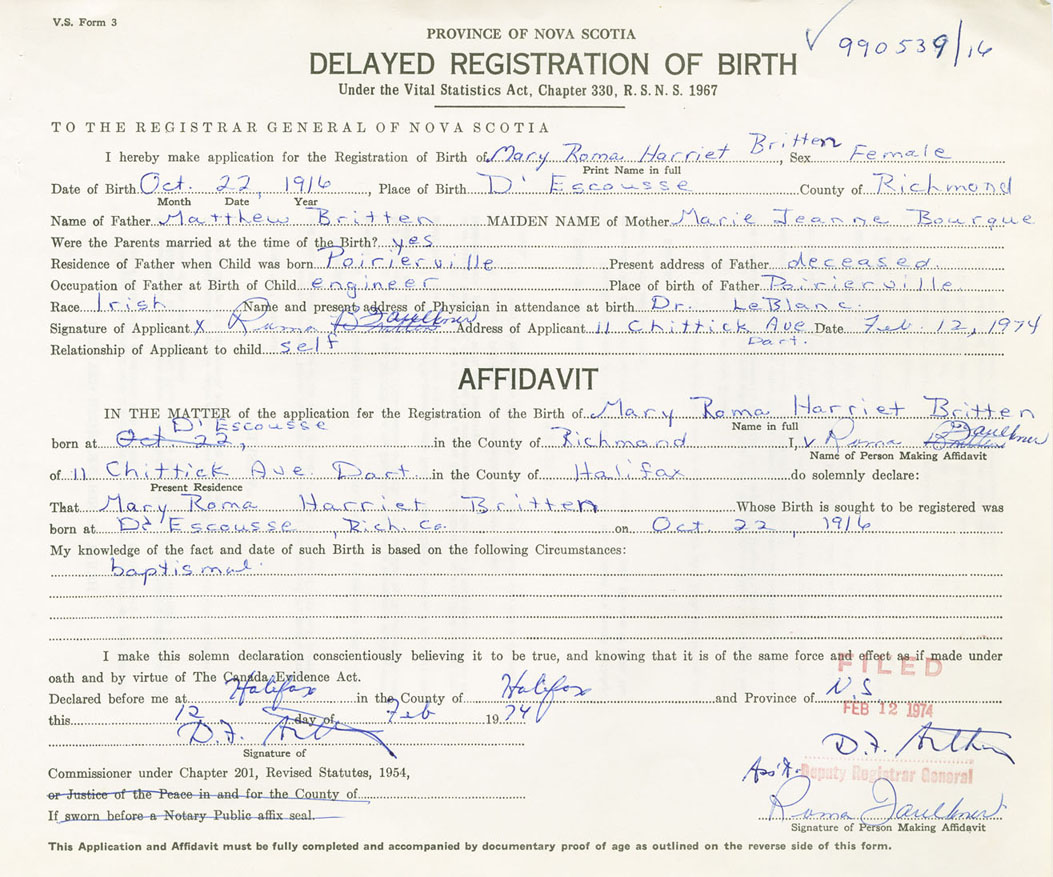 V.S. Form 3
PROVINCE OF NOVA SCOTIA
990539/16
DELAYED REGISTRATION OF BIRTH
Under the Vital Statistics Act, Chapter 330, R. S. N. S. 1967
TO THE REGISTRAR GENERAL OF NOVA SCOTIA
I hereby make application for the Registration of Birth of Mary Roma Harriet Britten, Sex Female
Print Name in full
Date of Birth Oct. 22, 1916, Place of Birth D'Escousse County of Richmond
Month Date Year
Name of Father Matthew Britten MAIDEN NAME of Mother Marie Jeanne Bourque
Were the Parents married at the time of the Birth? yes
Residence of Father when Child was born Poirierville Present address of Father deceased.
Occupation of Father at Birth of Child engineer Place of birth of Father Poirierville
Race Irish Name and present address of Physician in attendance at birth Dr. LeBlanc.
Signature of Applicant X Roma Faulkner Address of Applicant 11 Chittick Ave Date Feb. 12, 1974
Dart.
Relationship of Applicant to child self
AFFIDAVIT
IN THE MATTER of the application for the Registration of the Birth of Mary Roma Harriet Britten
Name in full
D'Escousse
born at Oct 22, in the County of Richmond I, Roma Faulkner
Name of Person Making Affidavit
of 11 Chittick Ave. Dart. in the County of Halifax do solemnly declare:
Present Residence
That Mary Roma Harriet Britten Whose Birth is sought to be registered was
born at D'Escousse, Rich. Co. on Oct. 22, 1916
My knowledge of the fact and date of such Birth is based on the following Circumstances:
baptismal.
I make this solemn declaration conscientiously believing it to be true, and knowing that it is of the same force and effect as if made under
oath and by virtue of The Canada Evidence Act.
FILED
Declared before me at Halifax in the County of Halifax and Province of N.S.
this 12 day of Feb 1974
FEB 12 1974
D.F.
Signature of
D.F.
Commissioner under Chapter 201, Revised Statutes, 1954,
Ass't. Deputy Registrar General
or Justice of the Peace in and for the County of
Roma Faulkner
If sworn before a Notary Public affix seal.
Signature of Person Making Affidavit
This Application and Affidavit must be fully completed and accompanied by documentary proof of age as outlined on the reverse side of this form.